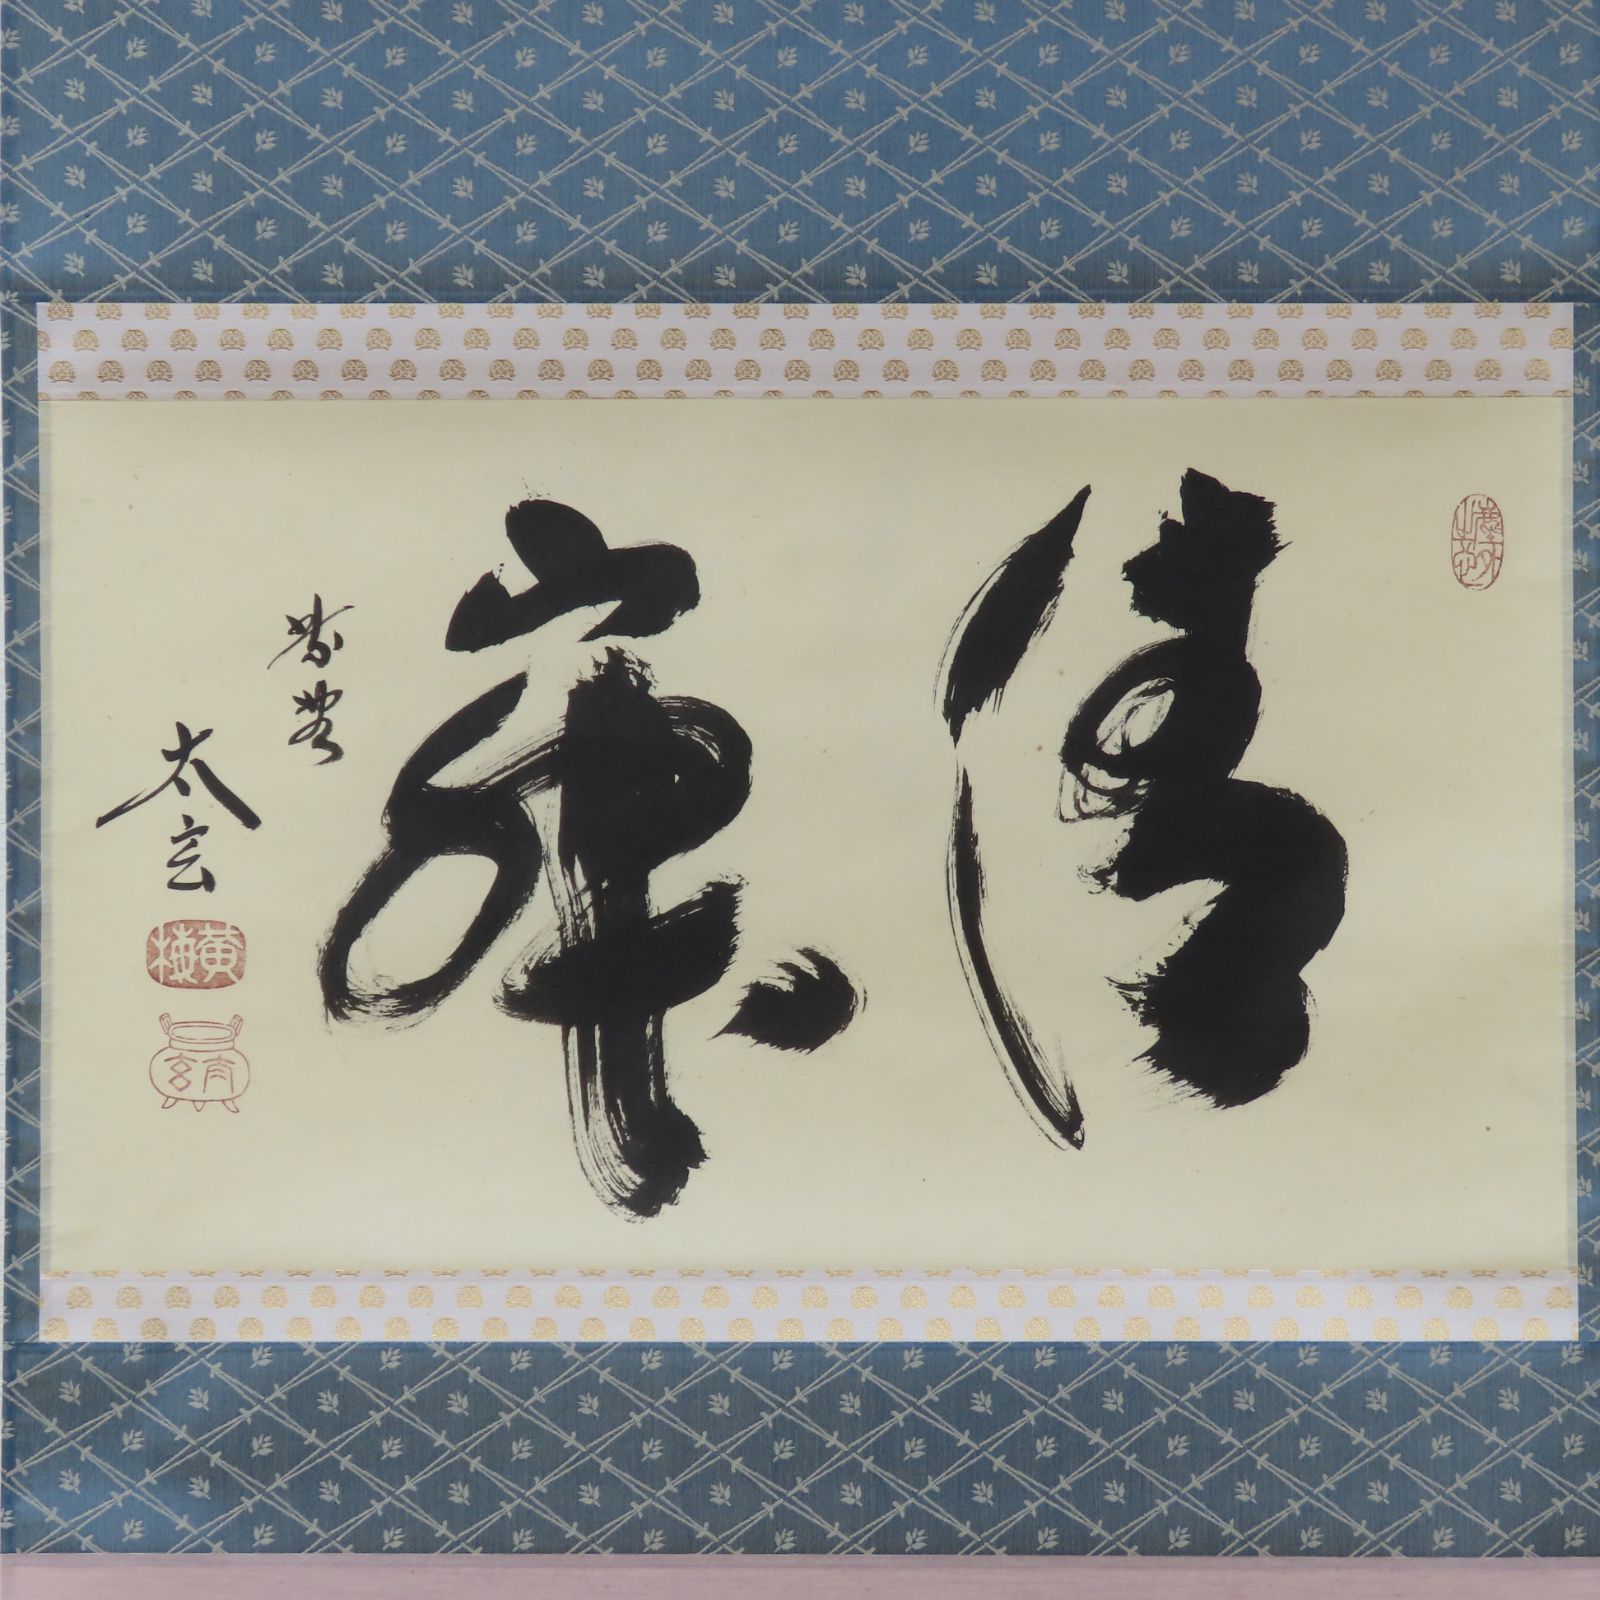 清寂
紫野
太玄
黄梅